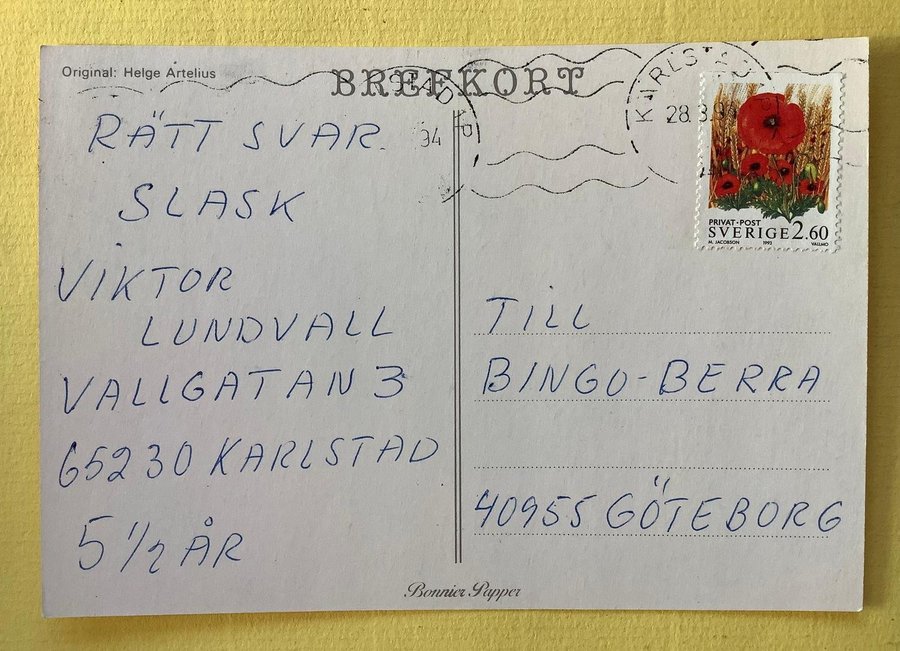 Original: Helge Artelius
BREFKORT
RÄTT SVAR.
SLASK
VIKTOR
LUNDVALL
VALLGATAN 3
65230 KARLSTAD
5 1/2 ÅR
94
KARLST
28.3.94
PRIVAT·POST
SVERIGE 2.60
M. JACOBSON 1993 VALLMO
TILL
BINGO-BERRA
40955 GÖTEBORG
Bonnier Papper